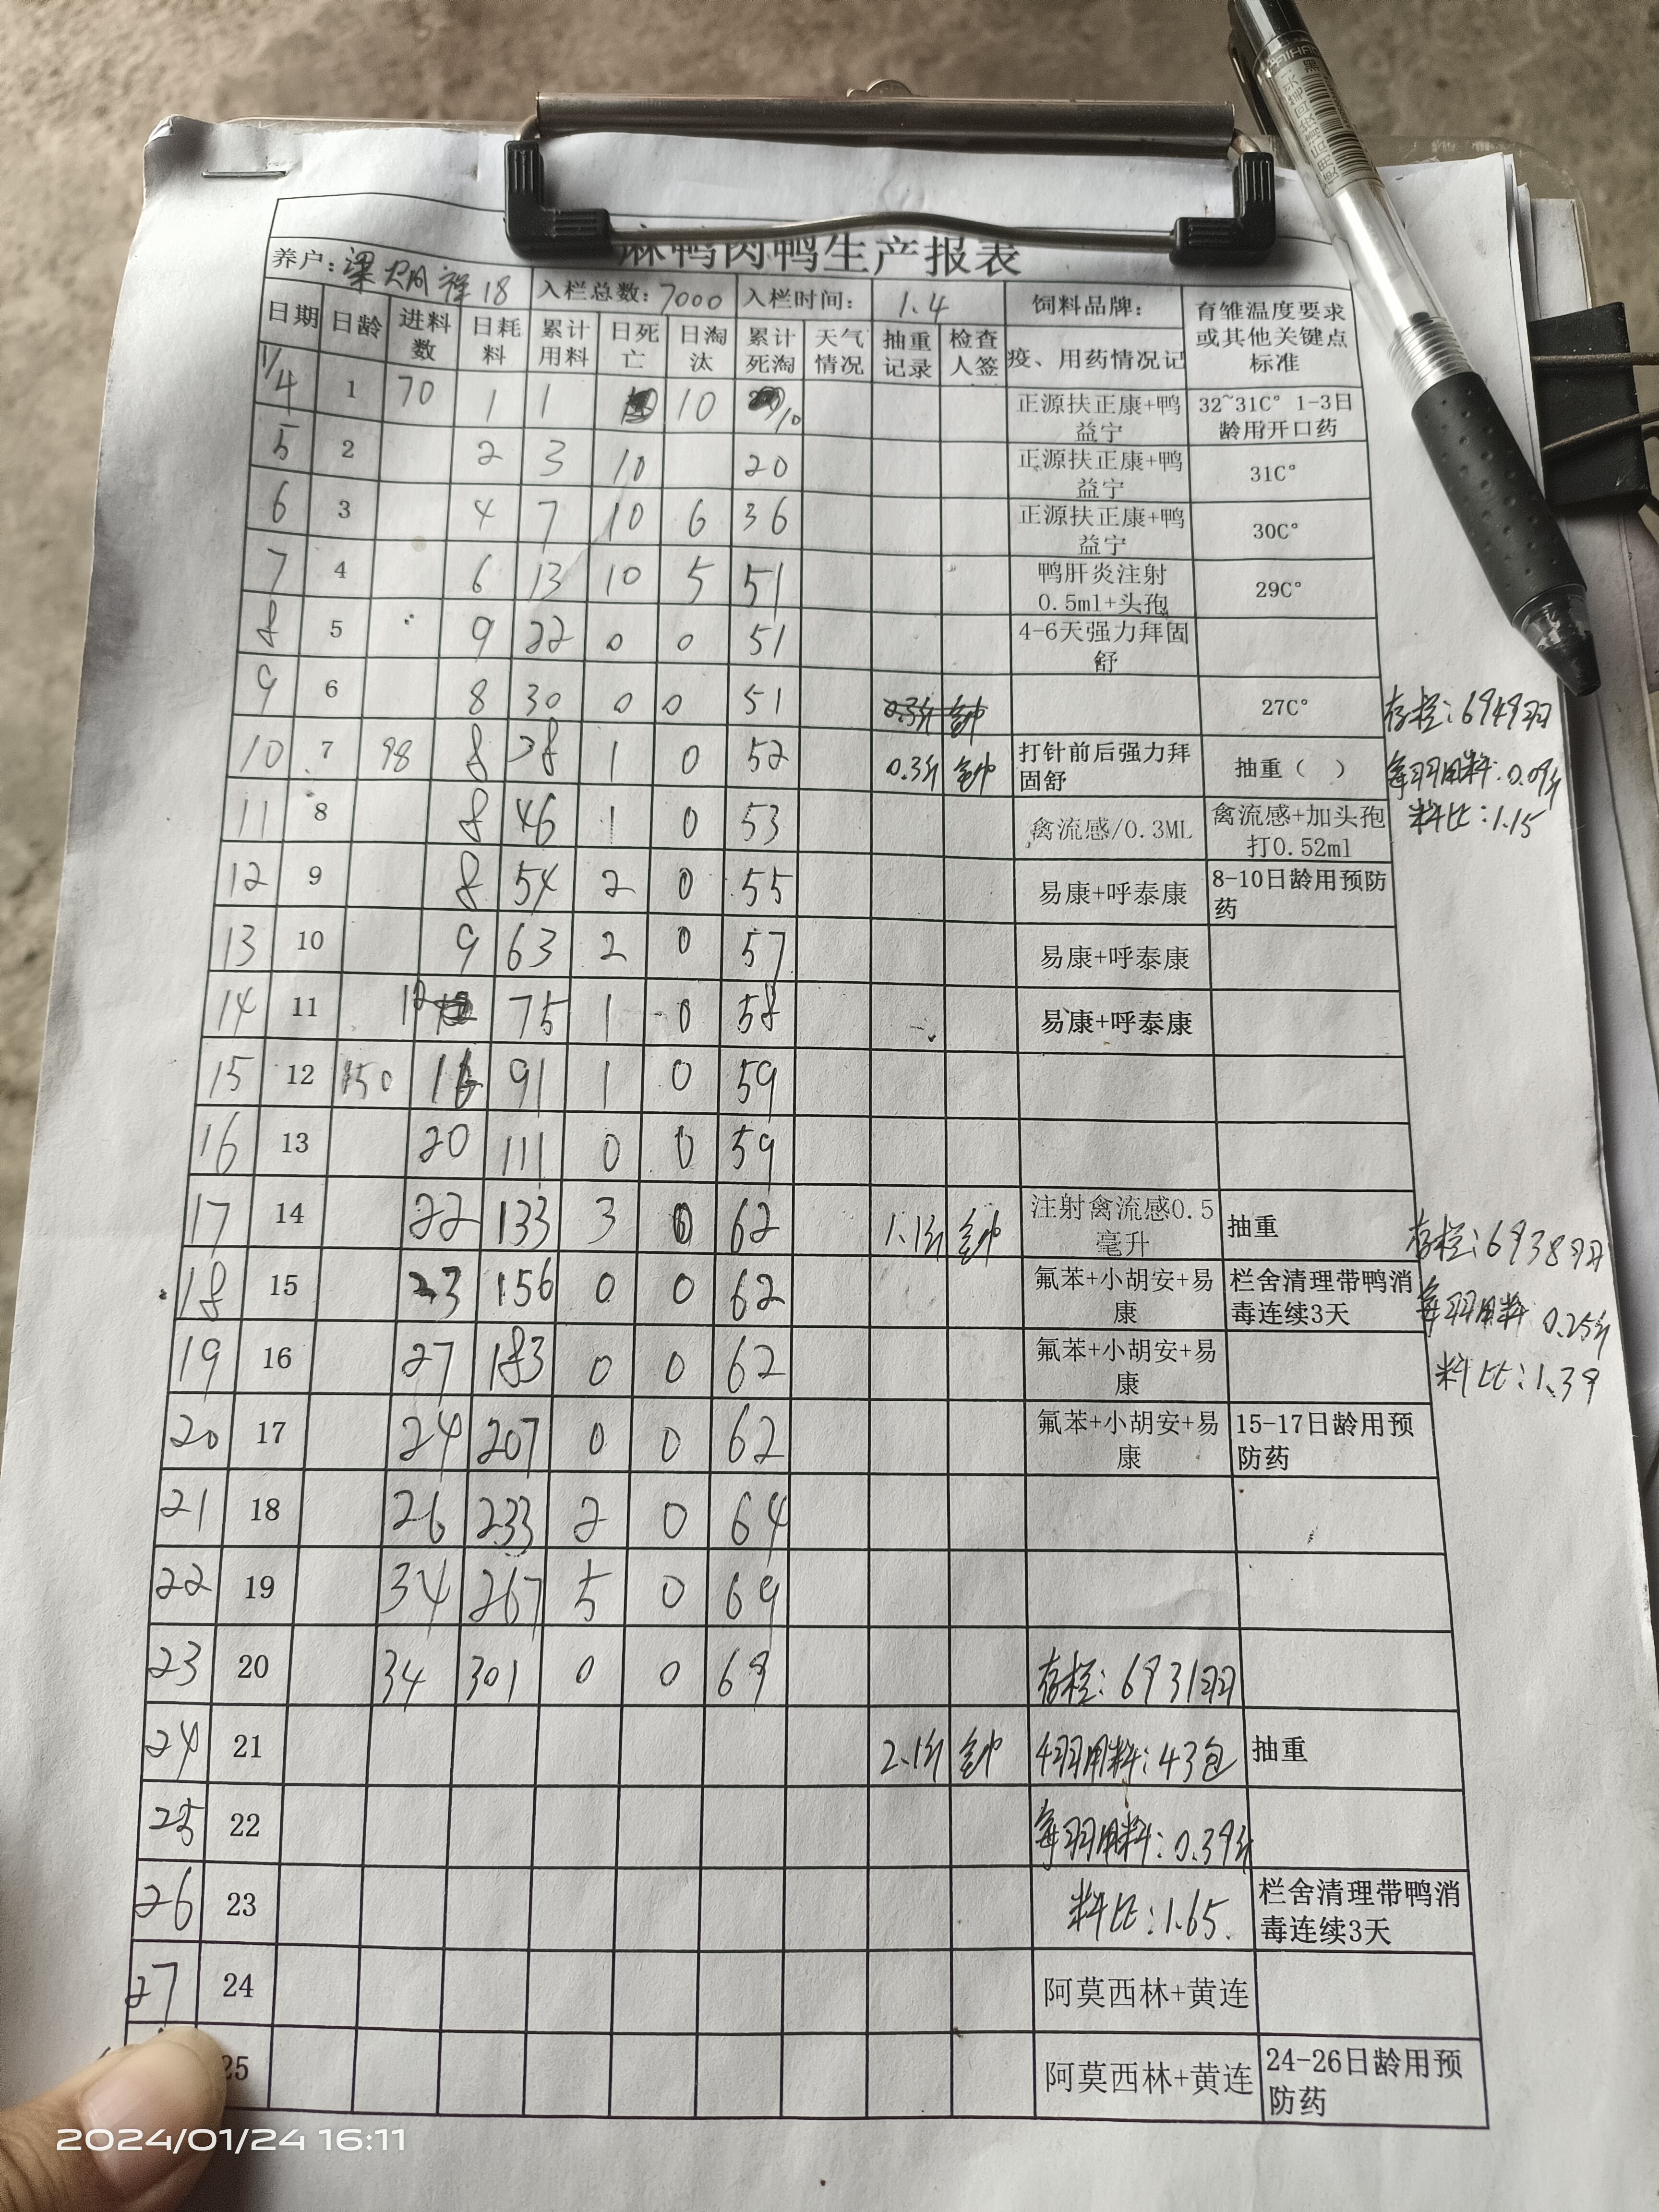 麻鸭肉鸭生产报表
养户: 18 入栏总数: 7000 入栏时间: 1.4 饲料品牌: 育雏温度要求或其他关键点标准
日期 日龄 进料数 日耗料 累计用料 日死亡 日淘汰 累计死淘 天气情况 抽重记录 检查人签 疫、用药情况记
1/4 1 70 1 1 10 10 正源扶正康+鸭益宁 32~31C° 1-3日龄用开口药
5 2 2 3 10 20 正源扶正康+鸭益宁 31C°
6 3 4 7 10 6 36 正源扶正康+鸭益宁 30C°
7 4 6 13 10 5 51 鸭肝炎注射0.5ml+头孢 29C°
8 5 9 22 0 0 51 4-6天强力拜固舒
9 6 8 30 0 0 51 0.3斤 27C° 存栏:6949羽
10 7 98 8 38 1 0 52 0.3斤 打针前后强力拜固舒 抽重( ) 每羽用料:0.09斤
11 8 8 46 1 0 53 禽流感/0.3ML 禽流感+加头孢打0.52ml 料比:1.15
12 9 8 54 2 0 55 易康+呼泰康 8-10日龄用预防药
13 10 9 63 2 0 57 易康+呼泰康
14 11 12 75 1 0 58 易康+呼泰康
15 12 150 16 91 1 0 59
16 13 20 111 0 0 59
17 14 22 133 3 0 62 1.1斤 注射禽流感0.5毫升 抽重 存栏:6938羽
18 15 23 156 0 0 62 氟苯+小胡安+易康 栏舍清理带鸭消毒连续3天 每羽用料 0.25斤
19 16 27 183 0 0 62 氟苯+小胡安+易康 料比:1.39
20 17 24 207 0 0 62 氟苯+小胡安+易康 15-17日龄用预防药
21 18 26 233 2 0 64
22 19 34 267 5 0 69
23 20 34 301 0 0 69 存栏:6931羽
24 21 2.1斤 羽用料:43包 抽重
25 22 每羽用料:0.39斤
26 23 料比:1.65 栏舍清理带鸭消毒连续3天
27 24 阿莫西林+黄连
25 阿莫西林+黄连 24-26日龄用预防药
2024/01/24 16:11